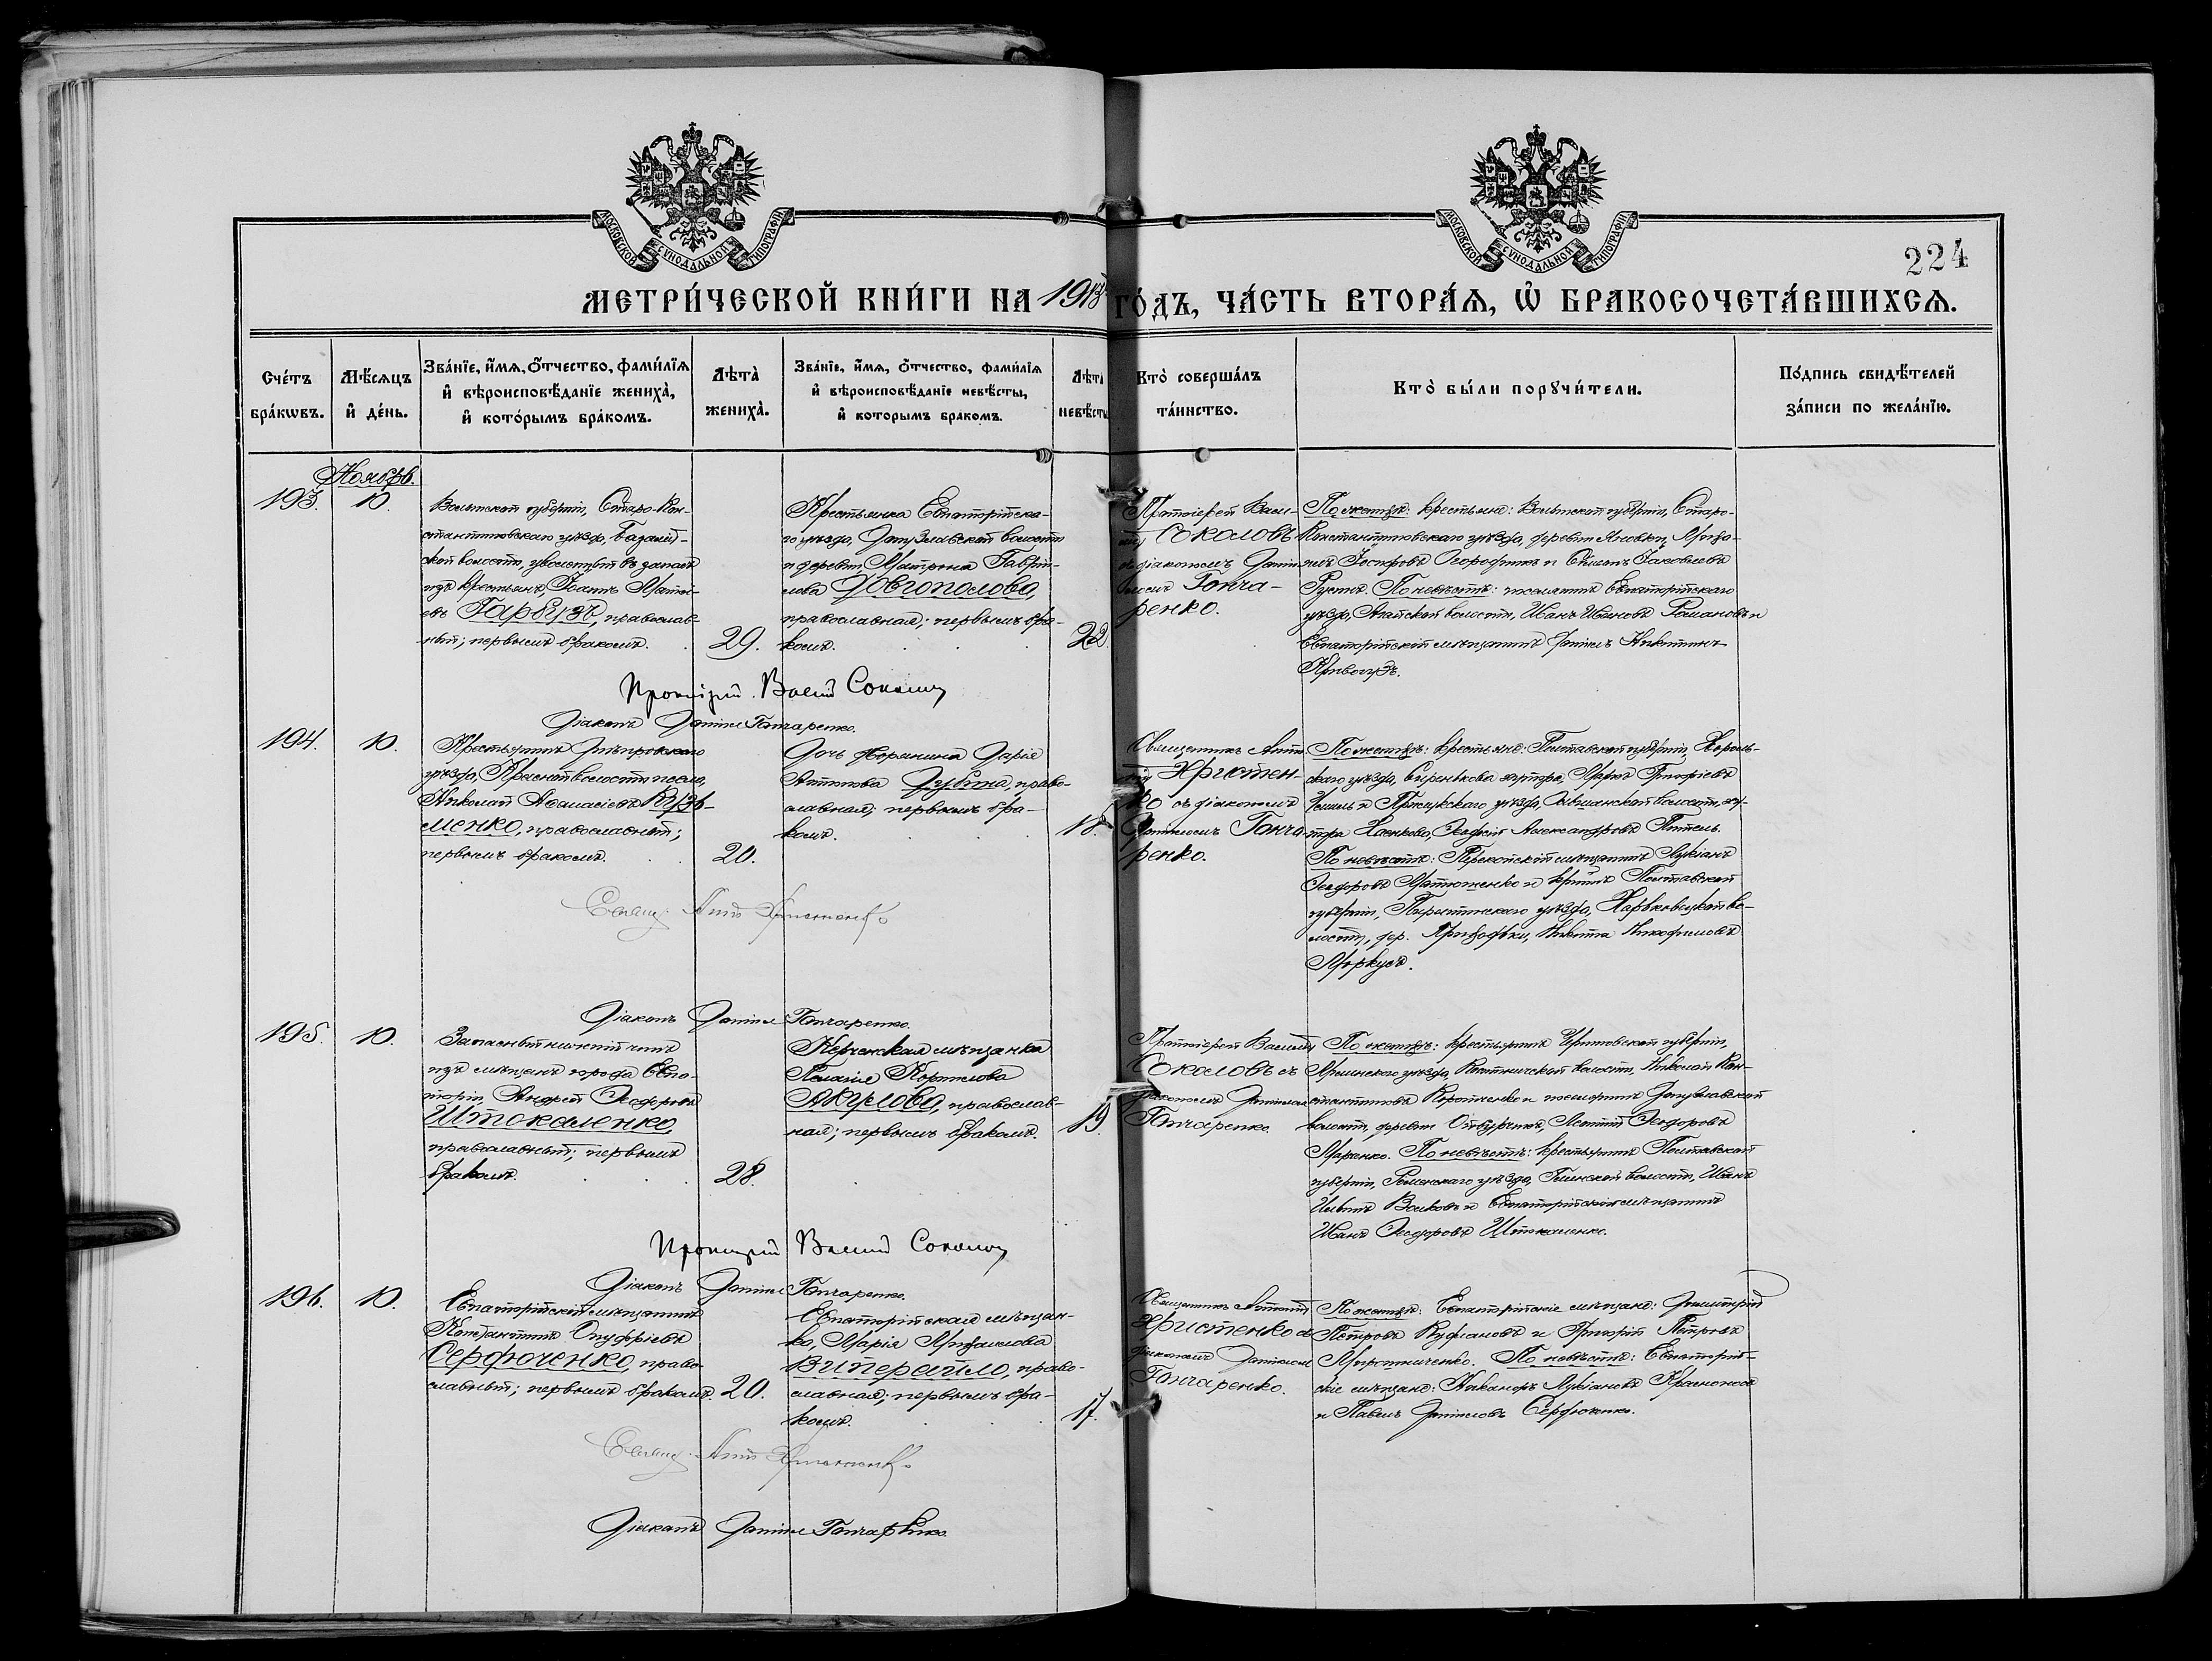 МОСКОВСКОЙ СУНОДАЛЬНОЙ ТИПОГРАФІИ
МОСКОВСКОЙ СУНОДАЛЬНОЙ ТИПОГРАФІИ
224
МЕТРИ́ЧЕСКОЙ КНИ́ГИ НА 1913 ГО́ДЪ, ЧА́СТЬ ВТОРА́Ѧ, Ѡ҆ БРАКОСОЧЕТА́ВШИХСѦ.
Сче́тъ
бра́кѡвъ.
Мѣ́сяцъ
и҆ де́нь.
Зва́нїе, и҆́мѧ, ѻ҆́тчество, фами́лїѧ
и҆ вѣроисповѣ́данїе жениха̀,
и҆ кото́рымъ бра́комъ.
Лѣта̀
жениха̀.
Зва́нїе, и҆́мѧ, ѻ҆́тчество, фами́лїѧ
и҆ вѣроисповѣ́данїе невѣ́сты,
и҆ которымъ бракомъ.
Лѣта
невѣсты
Кто̀ соверша́лъ
та́инство.
Кто̀ бы́ли порꙋчи́тели.
По́дпись свидѣ́телей
за́писи по жела́нїю.
Ноябрь.
193.
10.
Волынской губерніи, Старо-Кон-
стантиновскаго уѣзда,
ской волости, уволенный въ запасъ
изъ крестьянъ, Іоаннъ
евъ Гарбузъ, православ-
ный; первымъ бракомъ.
29.
Крестьянка Евпаторійска-
го уѣзда, Донузлавской волости
и деревни, Матрона Гаврі-
лова Довгополова,
православная; первымъ бра-
комъ.
22.
Протоіерей Васи-
лій Соколовъ
съ діакономъ Дани-
иломъ Гонча-
ренко.
По женихѣ: крестьяне: Волынской губерніи, Старо-
Константиновскаго уѣзда, деревни
Іосифовъ и Іаковлевъ
По невѣстѣ: поселянинъ Евпаторійскаго
уѣзда, волости, Иванъ Ивановъ Романовъ и
Евпаторійскій мѣщанинъ Даніилъ Никитинъ
Протоіерей Василій Соколовъ
Діаконъ Даніилъ Гончаренко.
194.
10.
Крестьянинъ Днѣпровскаго
уѣзда, волости и села,
Николай Аѳанасіевъ Кузь-
менко, православный;
первымъ бракомъ.
20.
Дочь дворянина Дарія
Антонова православ-
славная; первымъ бра-
комъ.
18.
Священникъ Анто-
ній Христен-
ко съ діакономъ
Даніиломъ Гонча-
ренко.
По женихѣ: крестьяне: Полтавской губерніи, Хороль-
скаго уѣзда, хутора, Григоріевъ
и уѣзда, волости, ху-
тора Александровъ
По невѣстѣ: Перекопскій мѣщанинъ Лукіанъ
Ѳеодоровъ Матюшенко и кр-нинъ Полтавской
губерніи, Пирятинскаго уѣзда, Харьковецкой во-
лости, дер. Никита Никодимовъ
Священ. Антоній Христенко
Діаконъ Даніилъ Гончаренко.
195.
10.
Запасный нижній чинъ
изъ мѣщанъ города Евпа-
торіи, Андрей Ѳеодоровъ
Штокаленко,
православный; первымъ
бракомъ.
28.
Керченская мѣщанка
Пелагія Корнилова
Акулова, православ-
ная; первымъ бракомъ.
19.
Протоіерей Василій
Соколовъ съ
діакономъ Даніиломъ
Гончаренко.
По женихѣ: крестьянинъ Черниговской губерніи,
уѣзда, волости, Николай Кон-
стантиновъ и поселянинъ Донузлавской
волости, деревни Ѳеодоровъ
Маренко. По невѣстѣ: крестьянинъ Полтавской
губерніи, Роменскаго уѣзда, Глинской волости, Иванъ
Ильинъ Волковъ и Евпаторійскій мѣщанинъ
Иванъ Ѳеодоровъ Штокаленко.
Протоіерей Василій Соколовъ
Діаконъ Даніилъ Гончаренко.
196.
10.
Евпаторійскій мѣщанинъ
Константинъ Онуфріевъ
Сердюченко, право-
славный; первымъ бракомъ.
20.
Евпаторійская мѣщан-
ка, Марія
право-
славная; первымъ бра-
комъ.
17.
Священникъ Антоній
Христенко съ
діакономъ Даніиломъ
Гончаренко.
По женихѣ: Евпаторійскіе мѣщане: Димитрій
Петровъ и Григорій Петровъ
Мирошниченко. По невѣстѣ: Евпаторій-
скіе мѣщане: Никаноръ Лукіановъ
и Павелъ Даніиловъ Сердюченко.
Священ. Антоній Христенко
Діаконъ Даніилъ Гончаренко.